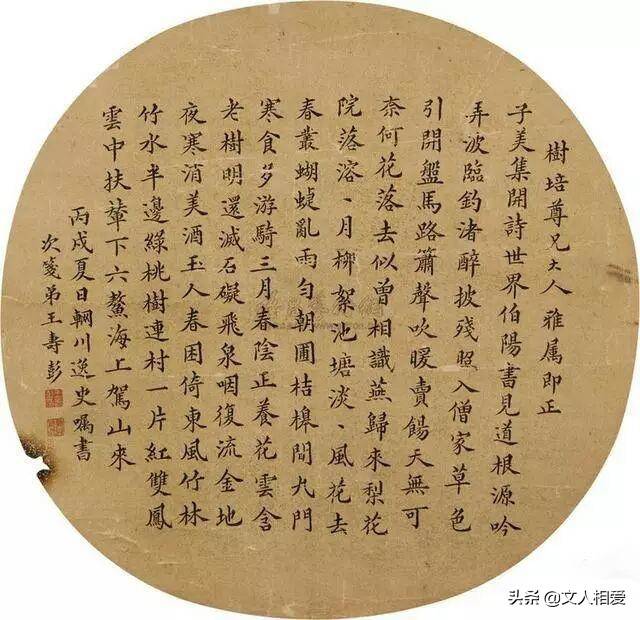 樹培尊兄大人雅属即正
子美集開詩世界伯陽書見道根源吟
弄波臨釣渚醉披殘照入僧家草色
引開盤馬路簫聲吹暖賣餳天無可
奈何花落去似曾相識燕歸來梨花
院落溶丶月柳絮池塘淡丶風花去
春叢蝴蜨亂雨勻朝圃桔槹閒九門
寒食多游騎三月春陰正養花雲含
老樹明還滅石礙飛泉咽復流金地
夜寒消美酒玉人春困倚東風竹林
竹水半邊綠桃樹連村一片紅雙鳳
雲中扶輦下六鰲海上駕山來
丙戌夏日輞川逸史囑書
次箋弟王壽彭
头条 @文人相爱